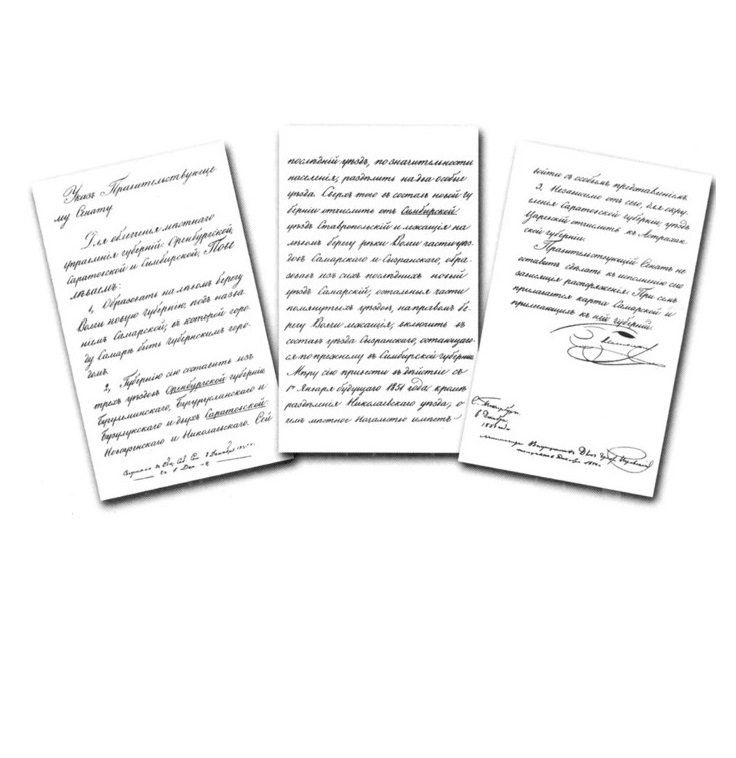 Указъ Правительствующе
му Сенату
Для облегченія мѣстнаго
управленія губерній: Оренбургской,
Саратовской и Симбирской, Повѣ
лѣваемъ:
1, Образовать на лѣвомъ берегу
Волги новую губернію подъ назва
ніемъ Самарской, въ которой горо-
ду Самарѣ быть губернскимъ горо-
домъ.
2, Губернію сію составить изъ
трехъ уѣздовъ Оренбургской губерніи
Бугульминскаго, Бугурусланскаго и
Бузулукскаго и двухъ Саратовской:
Новоузенскаго и Николаевскаго. Сей
послѣдній уѣздъ, по значительности
населенія, раздѣлить на два особые
уѣзда. Сверхъ того въ составъ новой гу
берніи отчислить отъ Симбирской:
уѣздъ Ставропольскій и лежащія на
лѣвомъ берегу рѣки Волги части уѣз
довъ Самарскаго и Сызранскаго, обра
зовавъ изъ сихъ послѣднихъ новый
уѣздъ Самарскій; остальныя части
помянутыхъ уѣздовъ, на правомъ бе
регу Волги лежащія, включить въ
составъ уѣзда Сызранскаго, остающаго
ся по прежнему въ Симбирской губерніи.
Мѣру сію привести въ дѣйствіе съ
1го Января будущаго 1851 года, кромѣ
раздѣленія Николаевскаго уѣзда, о
чемъ мѣстное Начальство имѣетъ
войти съ особымъ представленіемъ.
3, Независимо отъ сего, для окру
гленія Саратовской губерніи, уѣздъ
Царевскій отчислить къ Астрахан
ской губерніи.
Правительствующій Сенатъ не
оставитъ сдѣлать къ исполненію сего
зависящія распоряженія. При семъ
прилагается карта Самарской и
прилежащихъ къ ней губерній.
С. Петербургъ
6 Декабря
1850 года
Министръ Внутреннихъ Дѣлъ Графъ Перовскій